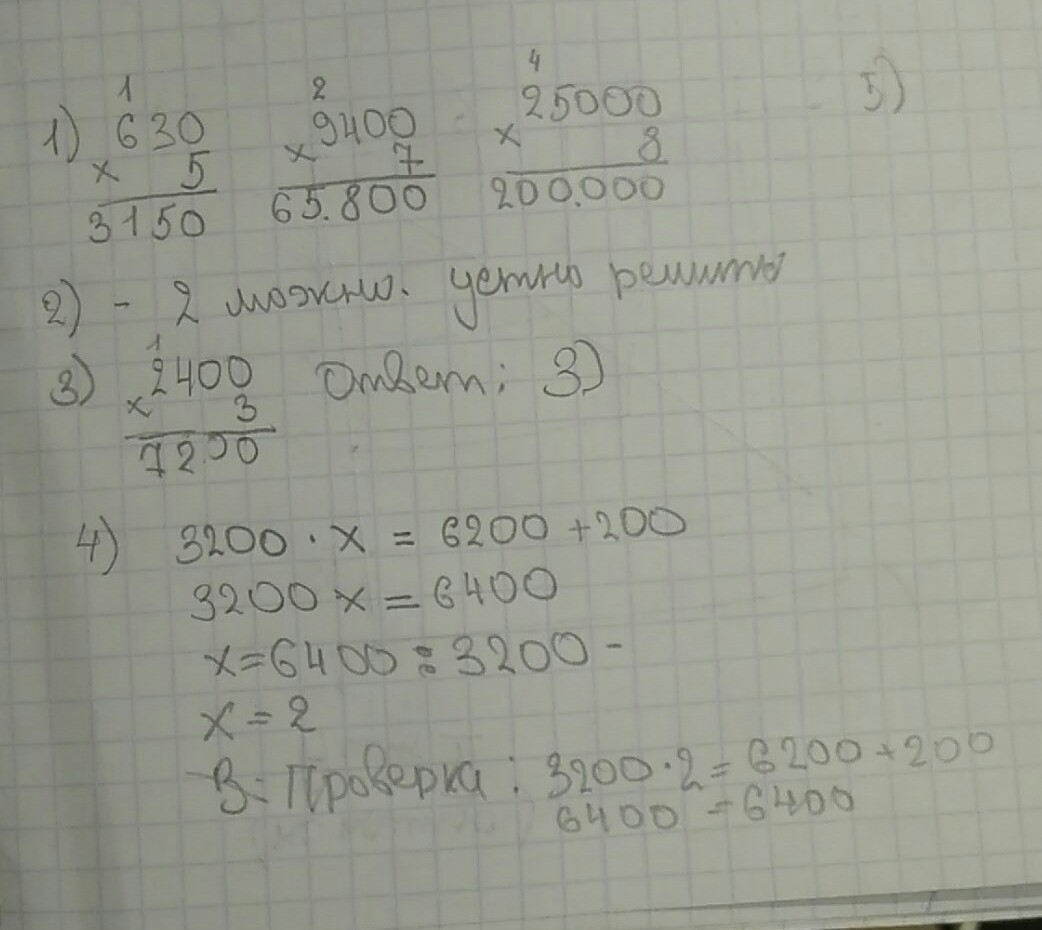 1) 630 × 5 = 3150 9400 × 7 = 65.800 25000 × 8 = 200.000 5)
2) - 2 можно. устно решить
3) 2400 × 3 = 7200 Ответ: 3)
4) 3200 · x = 6200 + 200
3200 x = 6400
x = 6400 : 3200 -
x = 2
Проверка: 3200 · 2 = 6200 + 200
6400 = 6400